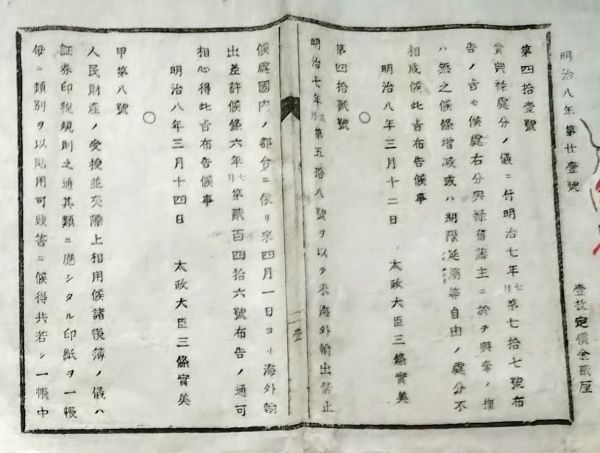 明治八年第廿壹號
壹枚定價金貳厘
第四拾壹號
賞典祿處分ノ儀ニ付明治七年七月第七拾七號布
告ノ旨モ候處右分與祿舊藩主ニ於テ與奪ノ權
ハ無之候條增減或ハ期限延縮等自由ノ處分不
相成候此旨布告候事
明治八年三月十二日
太政大臣三條實美
○
第四拾貳號
明治七年五月第五拾八號ヲ以テ米海外輸出禁止
二壹
候處國內ノ都合ニ依リ來四月一日ヨリ海外輸
出差許候條六年七月第貳百四拾六號布告ノ通可
相心得此旨布告候事
明治八年三月十四日
太政大臣三條實美
○
甲第八號
人民財產ノ受授並交際上相用候諸帳簿ノ儀ハ
証券印稅規則之通其類ニ應シタル印紙ヲ一帳
每ニ類別ヲ以見用可致筈ニ候得共若シ一帳中